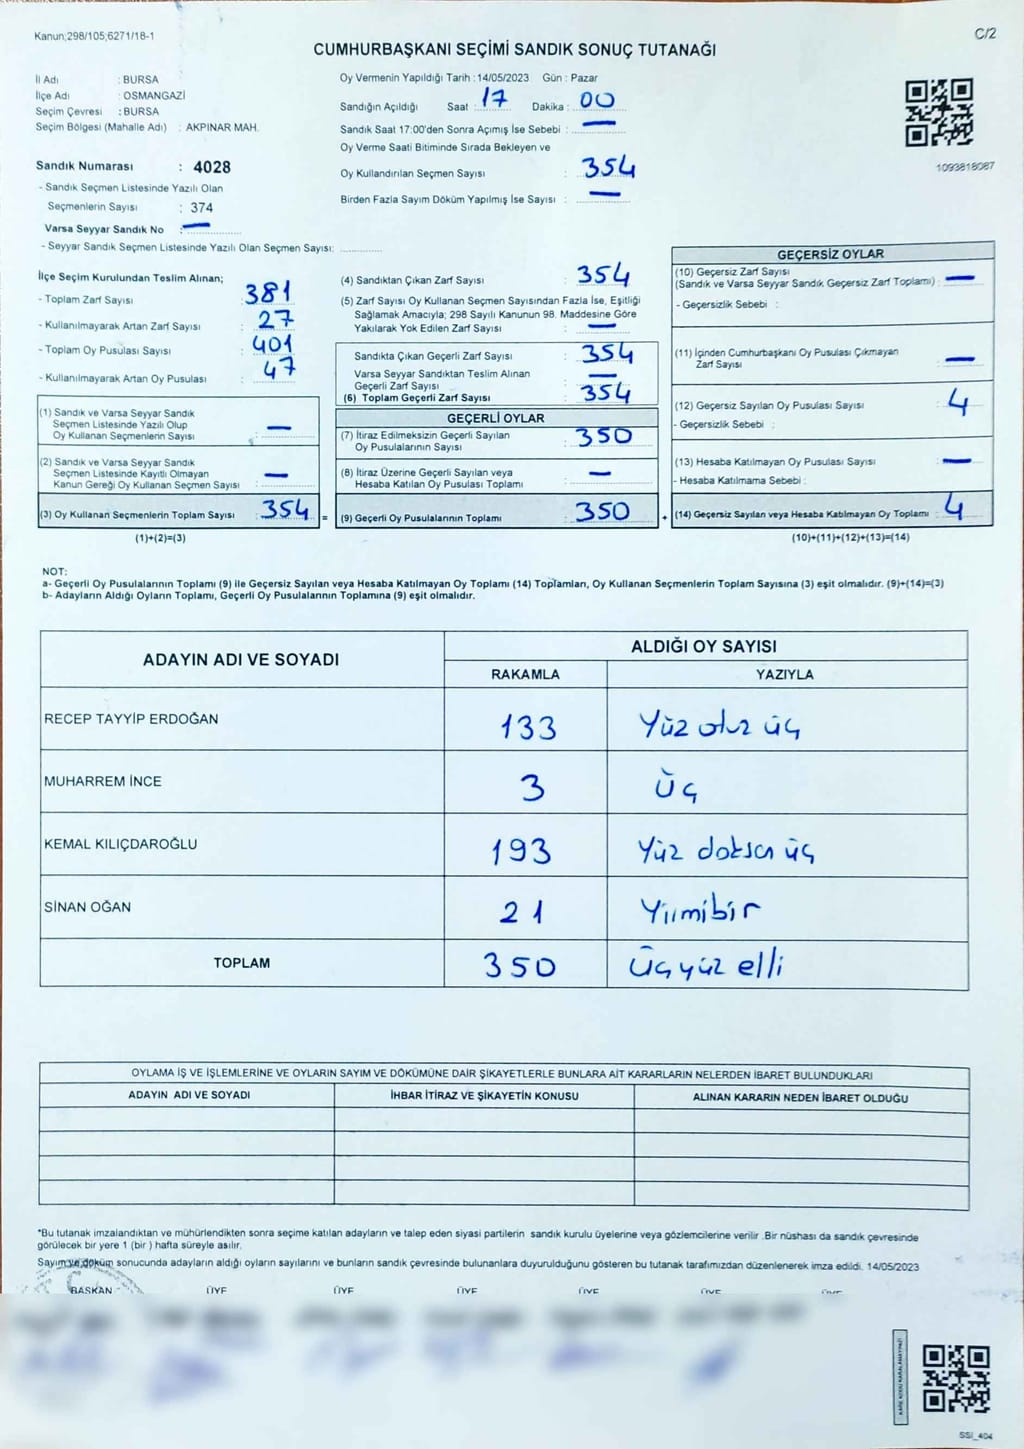 Kanun;298/105;6271/18-1
C/2
CUMHURBAŞKANI SEÇİMİ SANDIK SONUÇ TUTANAĞI
İl Adı : BURSA
İlçe Adı : OSMANGAZİ
Seçim Çevresi : BURSA
Seçim Bölgesi (Mahalle Adı) : AKPINAR MAH.
Sandık Numarası : 4028
- Sandık Seçmen Listesinde Yazılı Olan
Seçmenlerin Sayısı : 374
Varsa Seyyar Sandık No : —
- Seyyar Sandık Seçmen Listesinde Yazılı Olan Seçmen Sayısı: ............
Oy Vermenin Yapıldığı Tarih : 14/05/2023 Gün : Pazar
Sandığın Açıldığı Saat : 17 Dakika : 00
Sandık Saat 17:00'den Sonra Açımış İse Sebebi : —
Oy Verme Saati Bitiminde Sırada Bekleyen ve
Oy Kullandırılan Seçmen Sayısı : 354
Birden Fazla Sayım Döküm Yapılmış İse Sayısı : —
1093818087
İlçe Seçim Kurulundan Teslim Alınan;
- Toplam Zarf Sayısı : 381
- Kullanılmayarak Artan Zarf Sayısı : 27
- Toplam Oy Pusulası Sayısı : 401
- Kullanılmayarak Artan Oy Pusulası : 47
(1) Sandık ve Varsa Seyyar Sandık
Seçmen Listesinde Yazılı Olup
Oy Kullanan Seçmenlerin Sayısı : —
(2) Sandık ve Varsa Seyyar Sandık
Seçmen Listesinde Kayıtlı Olmayan
Kanun Gereği Oy Kullanan Seçmen Sayısı : —
(3) Oy Kullanan Seçmenlerin Toplam Sayısı : 354 =
(1)+(2)=(3)
(4) Sandıktan Çıkan Zarf Sayısı : 354
(5) Zarf Sayısı Oy Kullanan Seçmen Sayısından Fazla İse, Eşitliği
Sağlamak Amacıyla; 298 Sayılı Kanunun 98. Maddesine Göre
Yakılarak Yok Edilen Zarf Sayısı : —
Sandıkta Çıkan Geçerli Zarf Sayısı : 354
Varsa Seyyar Sandıktan Teslim Alınan
Geçerli Zarf Sayısı : —
(6) Toplam Geçerli Zarf Sayısı : 354
GEÇERLİ OYLAR
(7) İtiraz Edilmeksizin Geçerli Sayılan
Oy Pusulalarının Sayısı : 350
(8) İtiraz Üzerine Geçerli Sayılan veya
Hesaba Katılan Oy Pusulası Toplamı : —
(9) Geçerli Oy Pusulalarının Toplamı : 350 +
GEÇERSİZ OYLAR
(10) Geçersiz Zarf Sayısı
(Sandık ve Varsa Seyyar Sandık Geçersiz Zarf Toplamı) : —
- Geçersizlik Sebebi :
(11) İçinden Cumhurbaşkanı Oy Pusulası Çıkmayan
Zarf Sayısı : —
(12) Geçersiz Sayılan Oy Pusulası Sayısı : 4
- Geçersizlik Sebebi :
(13) Hesaba Katılmayan Oy Pusulası Sayısı : —
- Hesaba Katılmama Sebebi :
(14) Geçersiz Sayılan veya Hesaba Katılmayan Oy Toplamı : 4
(10)+(11)+(12)+(13)=(14)
NOT:
a- Geçerli Oy Pusulalarının Toplamı (9) ile Geçersiz Sayılan veya Hesaba Katılmayan Oy Toplamı (14) Toplamları, Oy Kullanan Seçmenlerin Toplam Sayısına (3) eşit olmalıdır. (9)+(14)=(3)
b- Adayların Aldığı Oyların Toplamı, Geçerli Oy Pusulalarının Toplamına (9) eşit olmalıdır.
ADAYIN ADI VE SOYADI ALDIĞI OY SAYISI
RAKAMLA YAZIYLA
RECEP TAYYİP ERDOĞAN 133 Yüz otuz üç
MUHARREM İNCE 3 Üç
KEMAL KILIÇDAROĞLU 193 Yüz doksan üç
SİNAN OĞAN 21 Yirmibir
TOPLAM 350 Üçyüz elli
OYLAMA İŞ VE İŞLEMLERİNE VE OYLARIN SAYIM VE DÖKÜMÜNE DAİR ŞİKAYETLERLE BUNLARA AİT KARARLARIN NELERDEN İBARET BULUNDUKLARI
ADAYIN ADI VE SOYADI İHBAR İTİRAZ VE ŞİKAYETİN KONUSU ALINAN KARARIN NEDEN İBARET OLDUĞU
*Bu tutanak imzalandıktan ve mühürlendikten sonra seçime katılan adayların ve talep eden siyasi partilerin sandık kurulu üyelerine veya gözlemcilerine verilir .Bir nüshası da sandık çevresinde
görülecek bir yere 1 (bir ) hafta süreyle asılır.
Sayım ve döküm sonucunda adayların aldığı oyların sayılarını ve bunların sandık çevresinde bulunanlara duyurulduğunu gösteren bu tutanak tarafımızdan düzenlenerek imza edildi. 14/05/2023
BAŞKAN ÜYE ÜYE ÜYE ÜYE ÜYE ÜYE
SSİ_404